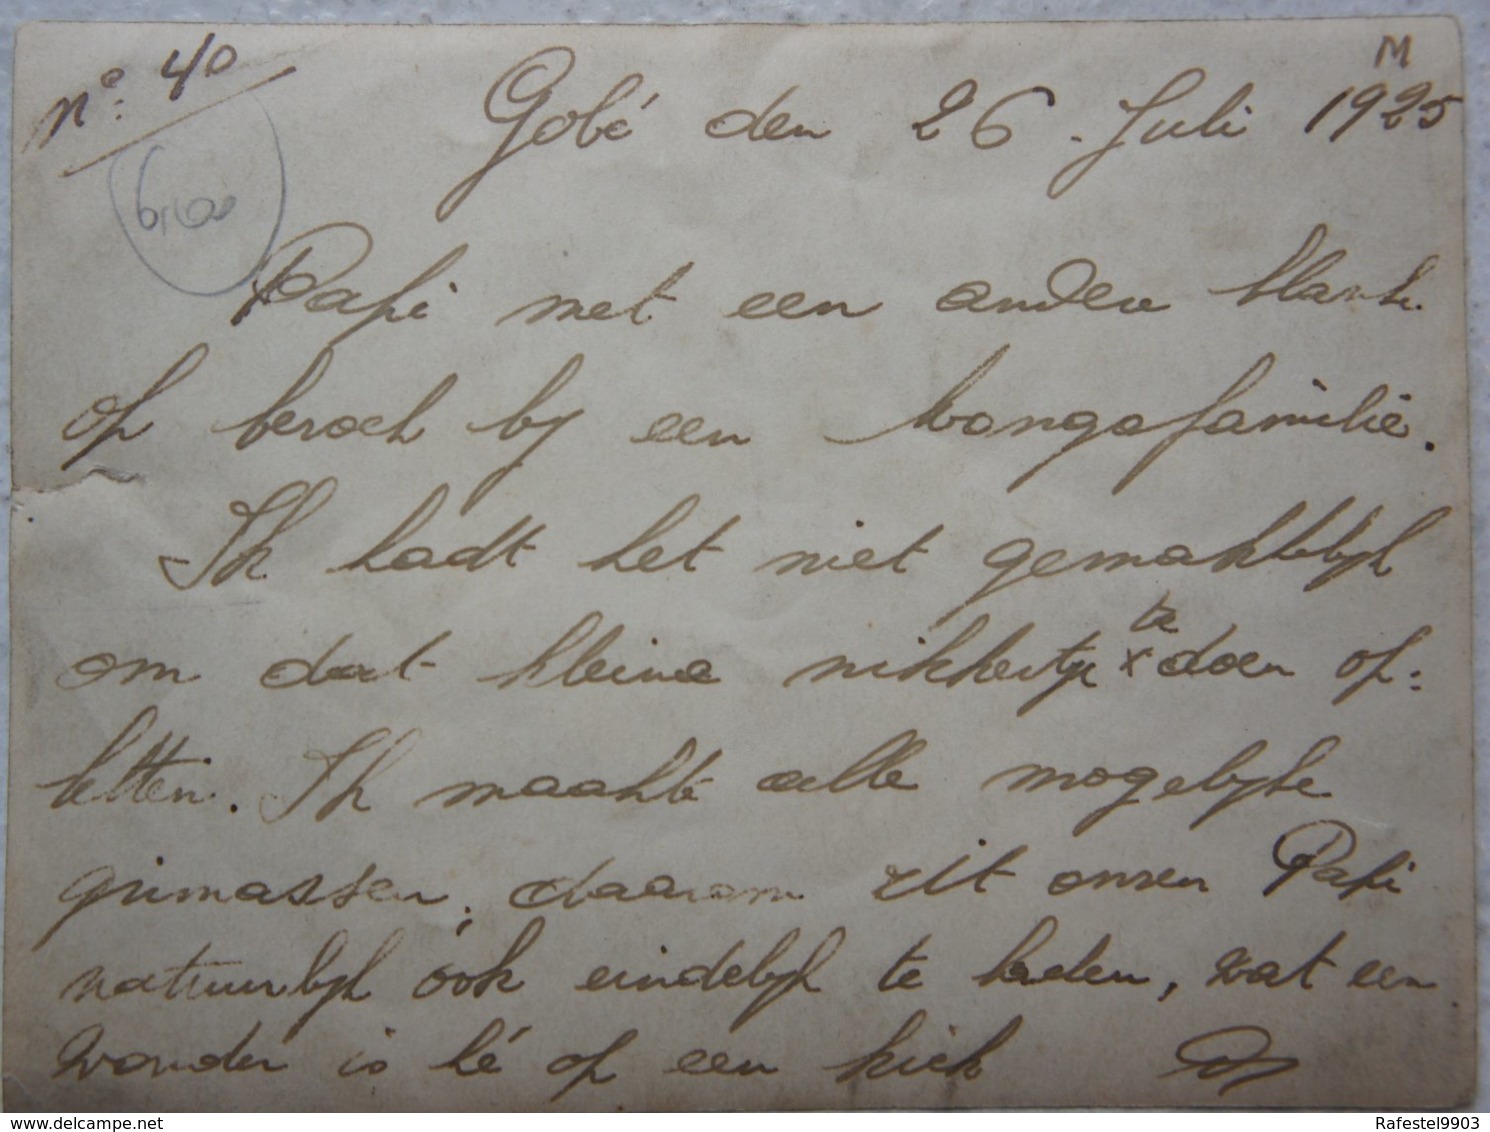 No: 40
M
Gobé den 26. Juli 1925
Papi met een andere blank
op bezoek by een wongofamilie.
Ik hadt het niet gemakkelyk
om dat kleine nikkertje te x doen op=
letten. Ik maakte alle mogelyke
grimassen, daarom zit onzen Papi
natuurlyk óók eindelyk te laden, wat een
wonder is hé op een kiek
www.delcampe.net
Rafestel9903